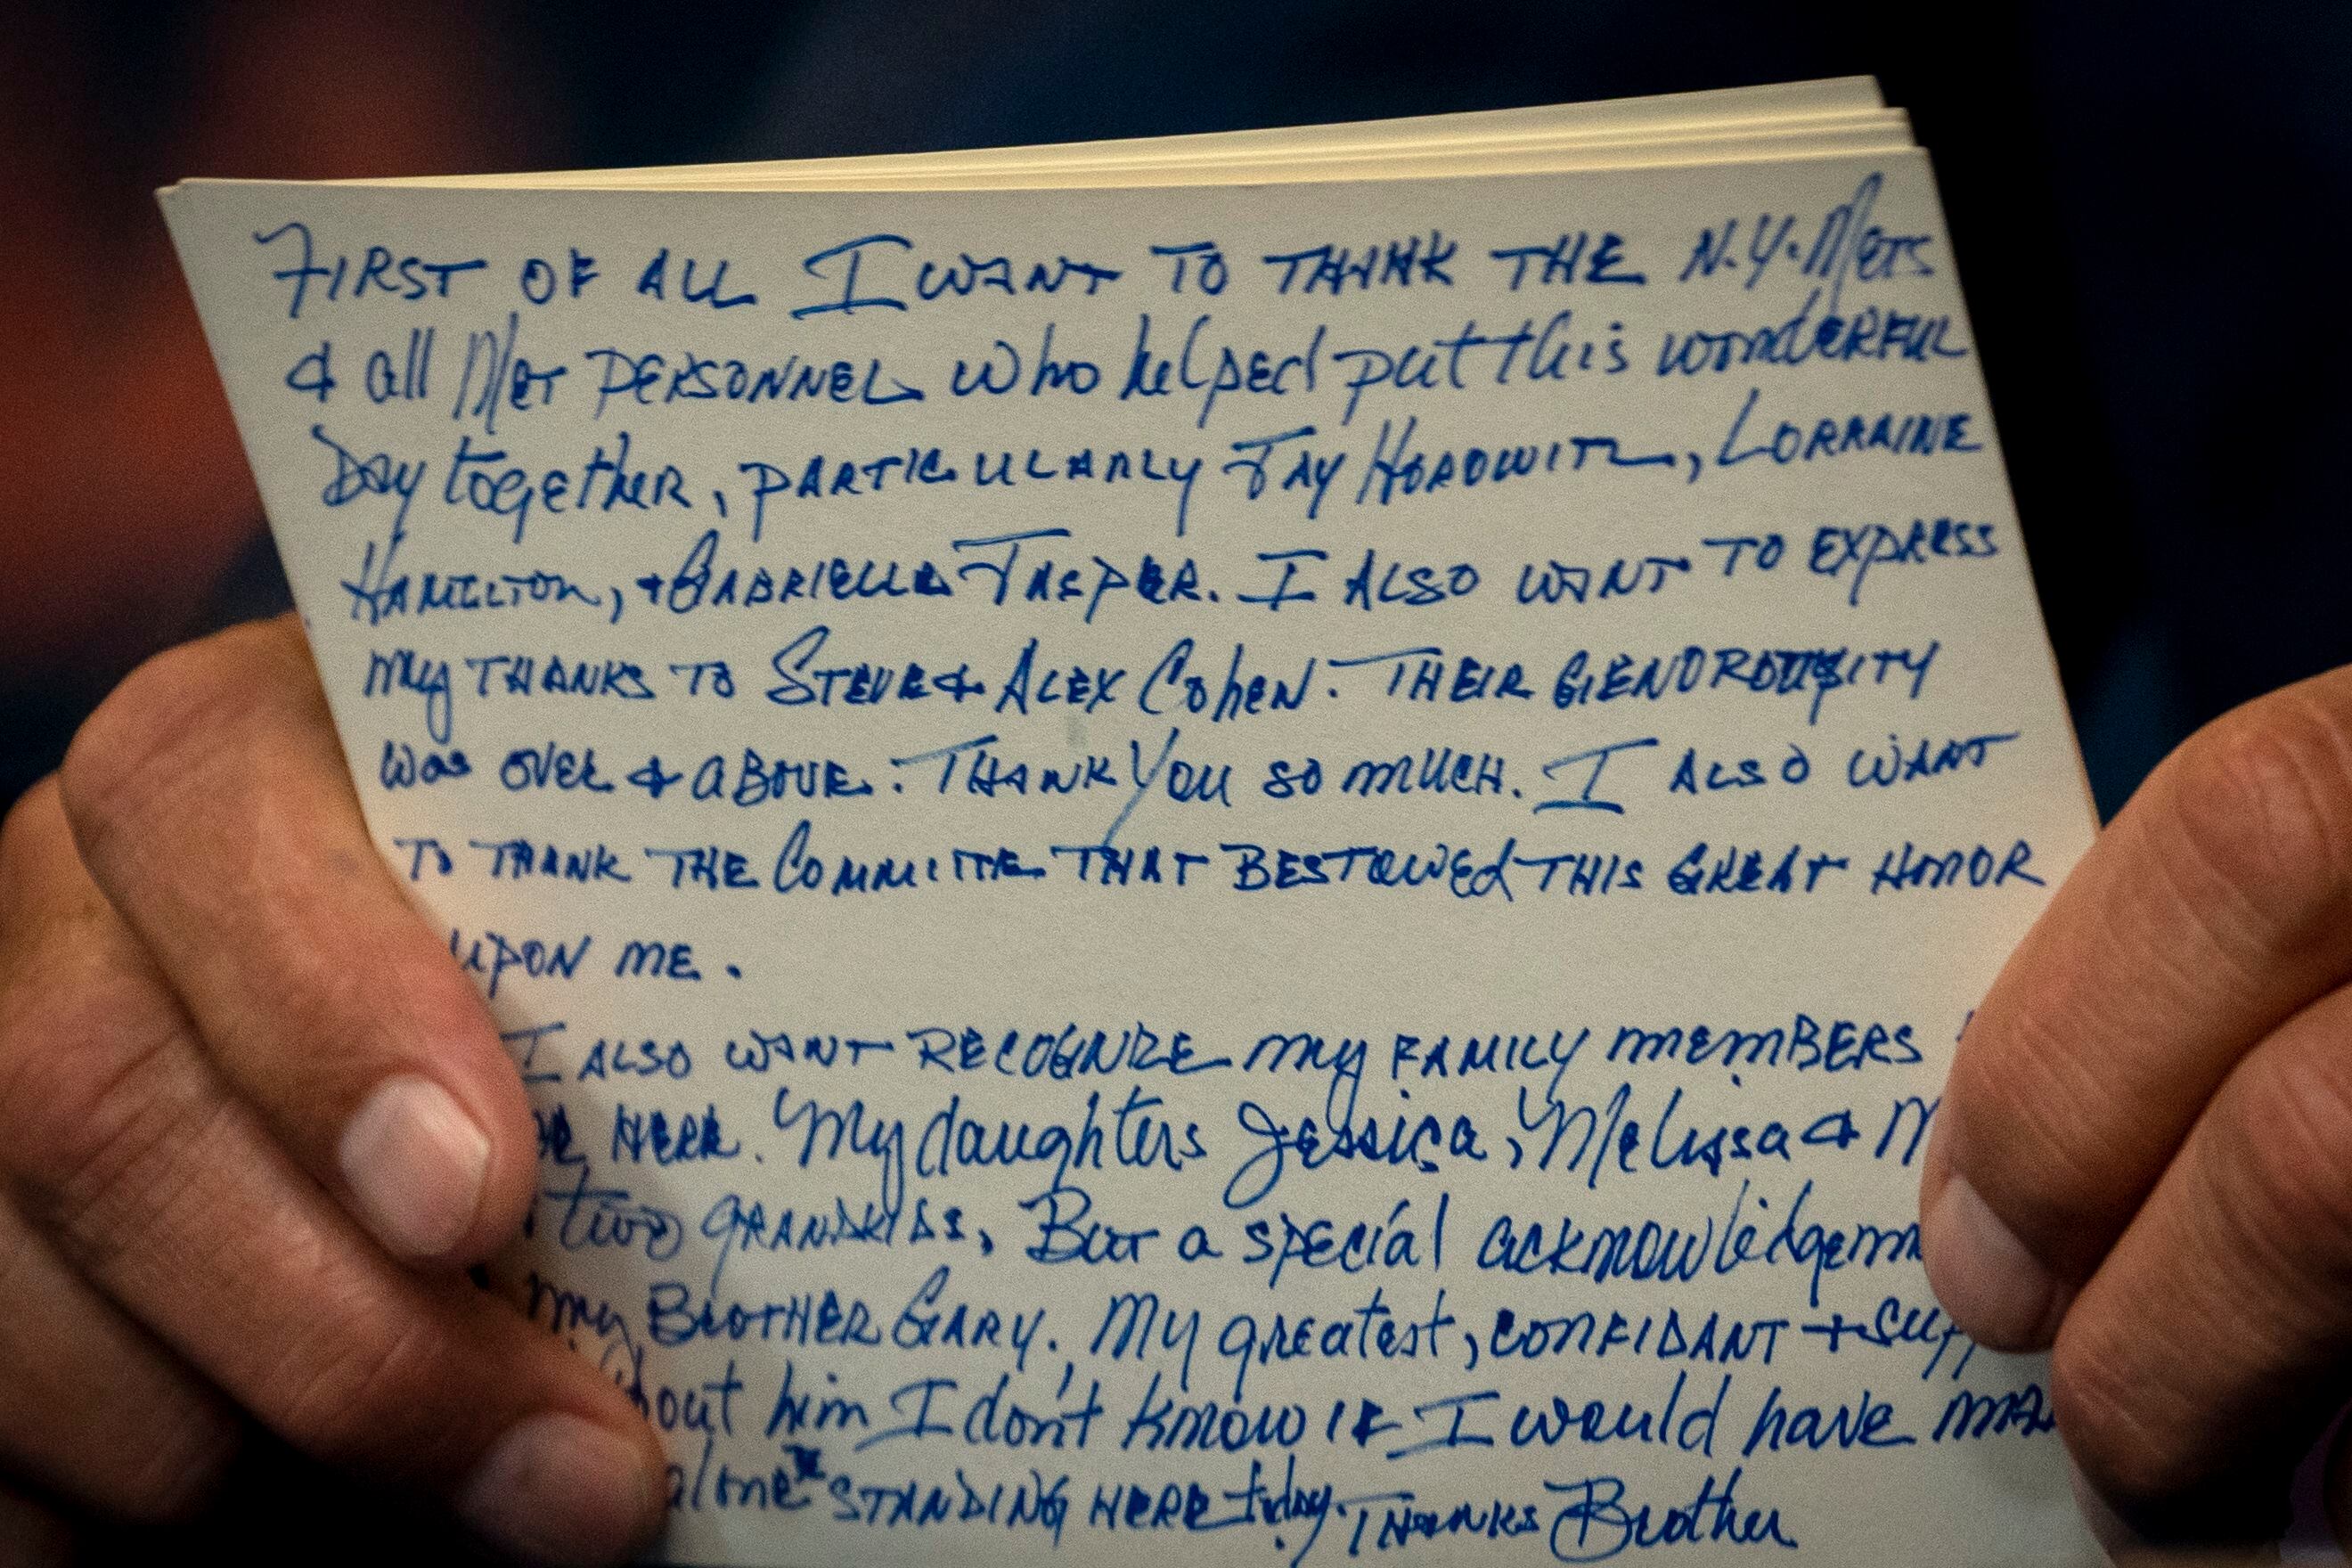 FIRST OF ALL I WANT TO THANK THE N.Y. Mets
& all Met PERSONNEL who helped put this wonderFUL
Day together, PARTICULARLY JAY HOROWITZ, LORRAINE
HAMILTON, + GABRIELLE JASPER. I ALSO WANT TO EXPRESS
My THANKS TO STEVE & ALEX COHEN. THEIR
was OVER & ABOVE. THANK YOU SO MUCH. I ALSO WANT
TO THANK THE COMMITTE THAT BESTOWEd THIS GREAT HONOR
UPON ME.
I ALSO WANT RECOGNIZE my FAMILY memBERS
HERE. My daughters Jessica, Melissa & M
two GRANDKIDS. But a special acknowlidgem
my BROTHER GARY. My greatest, CONFIDANT + SUPP
hout him I don't know IF I would have MA
alone STANDING HERE today. THANKS Brother